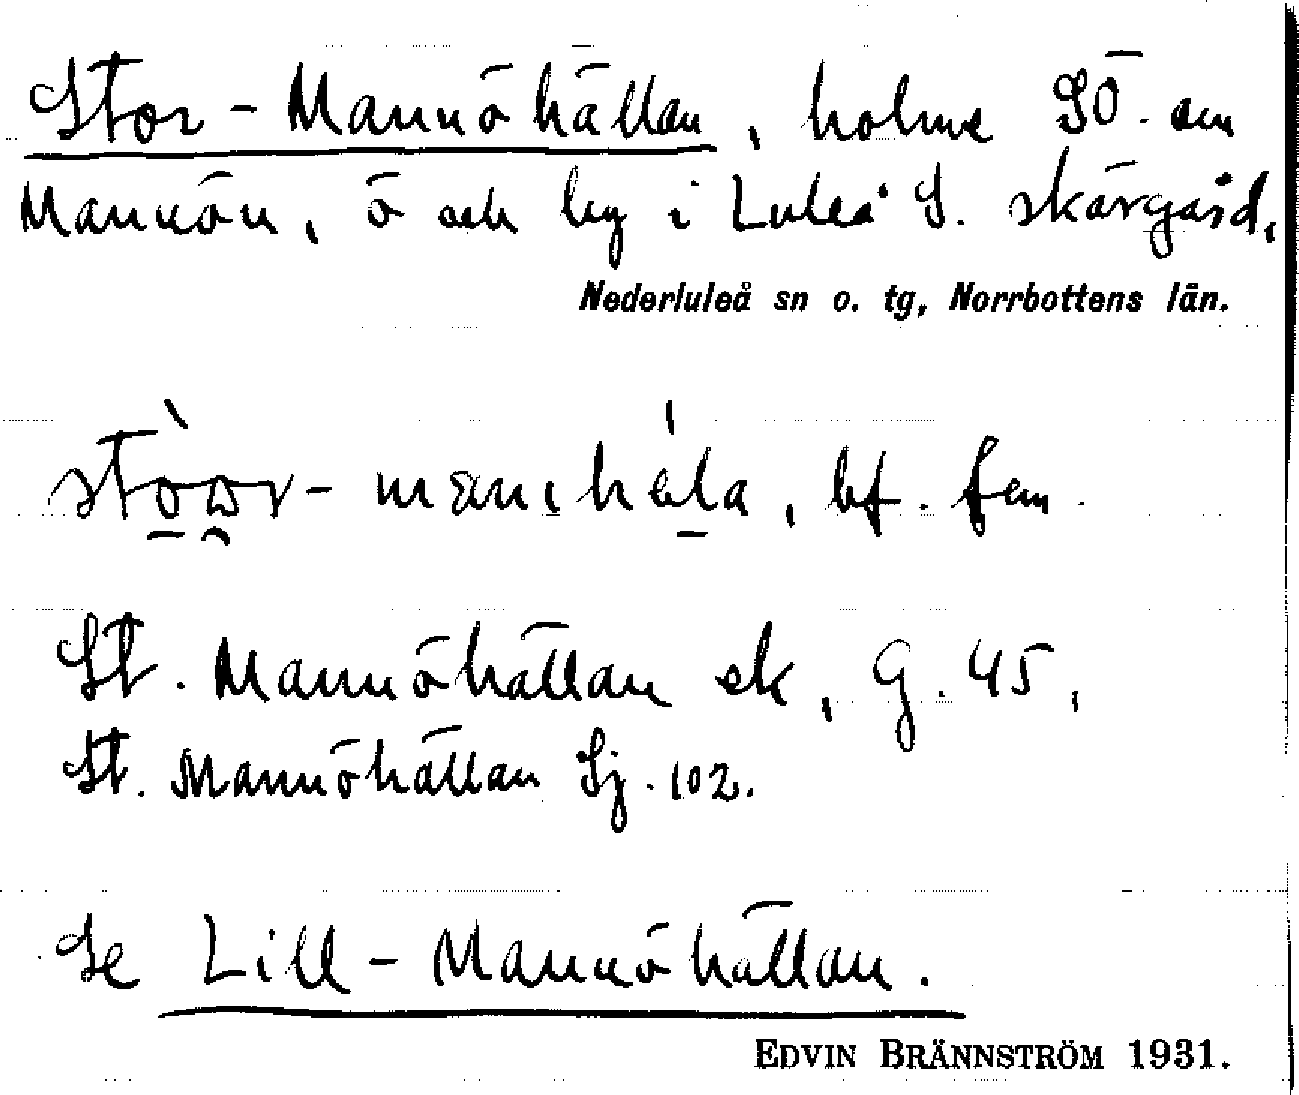 Stor-Mannöhällan, holme SÖ. om
Mannön, ö och by i Luleå S. skärgård.
Nederluleå sn o. tg, Norrbottens län.
bf. fem.
St. Mannöhällan ek, G. 45,
St. Mannöhällan Sj. 102.
Se Lill-Mannöhällan.
EDVIN BRÄNNSTRÖM 1931.